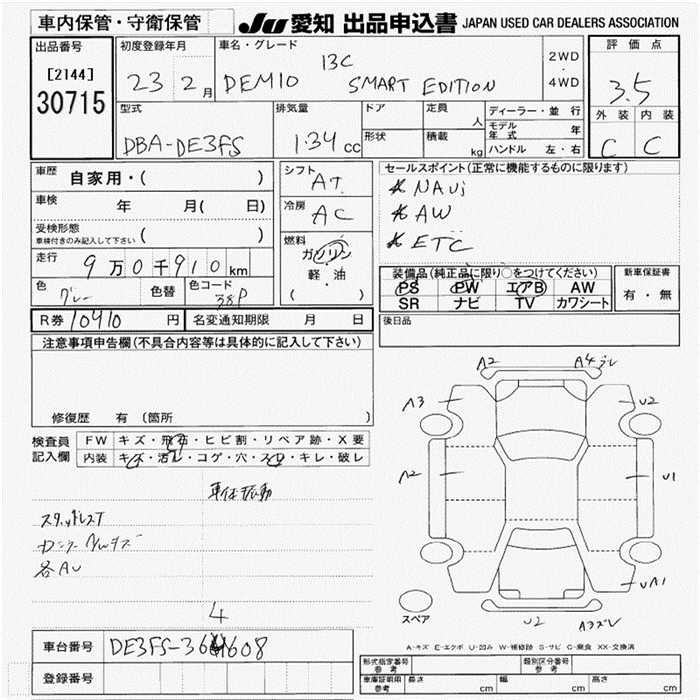 車内保管・守衛保管 JU 愛知 出品申込書 JAPAN USED CAR DEALERS ASSOCIATION
出品番号 [2144] 30715
初度登録年月 23 2月
車名・グレード 13C
DEMIO SMART EDITION
2WD ・ 4WD
評価点 3.5
外装 内装
C C
型式 DBA-DE3FS
排気量 1.34 cc
ドア 定員 人
形状 積載 kg
ディーラー・並行
モデル年式 年
ハンドル 左・右
車歴 自家用・( )
車検 年 月( 日)
受検形態 車検付きのみ記入して下さい ( )
走行 9万0千910km
色 グレー 色替 色コード 38P
シフト AT
冷房 AC
燃料 ガソリン
軽・油
( )
セールスポイント(正常に機能するものに限ります)
NAVi
AW
ETC
装備品(純正品に限り○をつけてください)
PS PW エアB AW
SR ナビ TV カワシート
新車保証書
有・無
R券 10910 円 名変通知期限 月 日
後日品
注意事項申告欄(不具合内容等は具体的に記入して下さい)
修復歴 有 (箇所 )
検査員記入欄
FW キズ・飛石・ヒビ割・リペア跡・X要
内装 キズ・汚れ・コゲ・穴・スレ・キレ・破レ
車体振動
スタッドレスT
各AU
4
A2 A4
A3 U2
A2 U1
UA1
U2 A3ズレ
スペア
A-キズ E-エクボ U-凹み W-補修跡 S-サビ C-腐食 XX-交換済
車台番号 DE3FS-36 608
登録番号
形式指定番号 参考 類別区分番号 参考
車庫証明用 参考 長さ cm 幅 cm 高さ cm